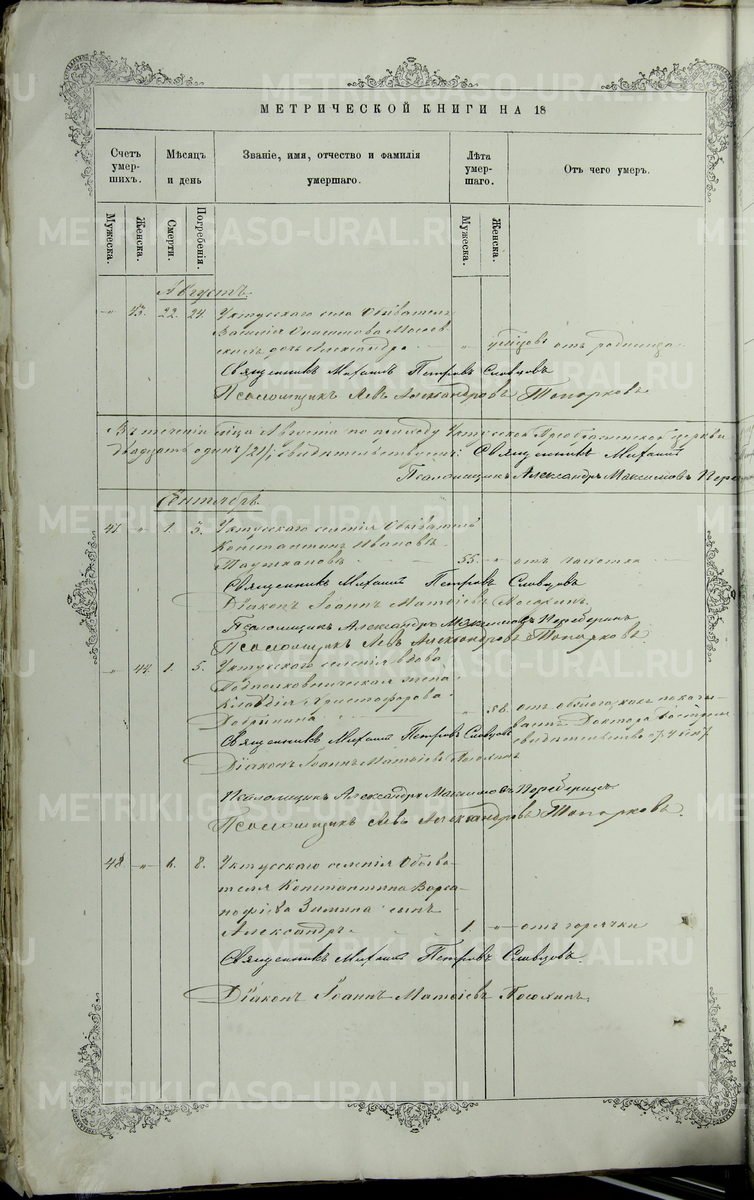 МЕТРИЧЕСКОЙ КНИГИ НА 18
Счетъ умер-шихъ.
Мѣсяцъ и день
Званіе, имя, отчество и фамилія умершаго.
Лѣта умер-шаго.
Отъ чего умеръ.
Мужеска.
Женска.
Смерти.
Погребенія.
Мужеска.
Женска.
Августъ.
" 43. 22. 24. Уктусскаго села Обыватель
Василія
дочь Александра " отъ родимца
Священникъ Михаилъ Петровъ Словцовъ
Псаломщикъ Левъ Александровъ Топорковъ.
Въ теченіи Августа по приходу Уктусской Преображенской церкви
двадцать одинъ /21/, свидѣтельствуемъ: Священникъ Михаил
Псаломщикъ Александръ Максимовъ
Сентябрь.
47 " 1. 3. Уктусскаго селенія Обыватель
Константинъ Ивановъ
55. " отъ чахотки
Священникъ Михаилъ Петровъ Словцовъ
Діаконъ Іоаннъ Матѳіевъ
Псаломщикъ Александръ Максимовъ
Псаломщикъ Левъ Александровъ Топорковъ
" 44. 1. 5. Уктусскаго селенія вдова
Подполковническая жена
Клавдія Христофорова
" 58. отъ
Доктора
свидѣтельство
Священникъ Михаилъ Петровъ Словцовъ
Діаконъ Іоаннъ Матѳіевъ
Псаломщикъ Александръ Максимовъ
Псаломщикъ Левъ Александровъ Топорковъ.
48 " 6. 8. Уктусскаго селенія Обыва-
теля Константина Варса-
нофіева Зимина сынъ
Александръ. 1. " отъ горячки
Священникъ Михаилъ Петровъ Словцовъ.
Діаконъ Іоаннъ Матѳіевъ
METRIKI.GASO-URAL.RU